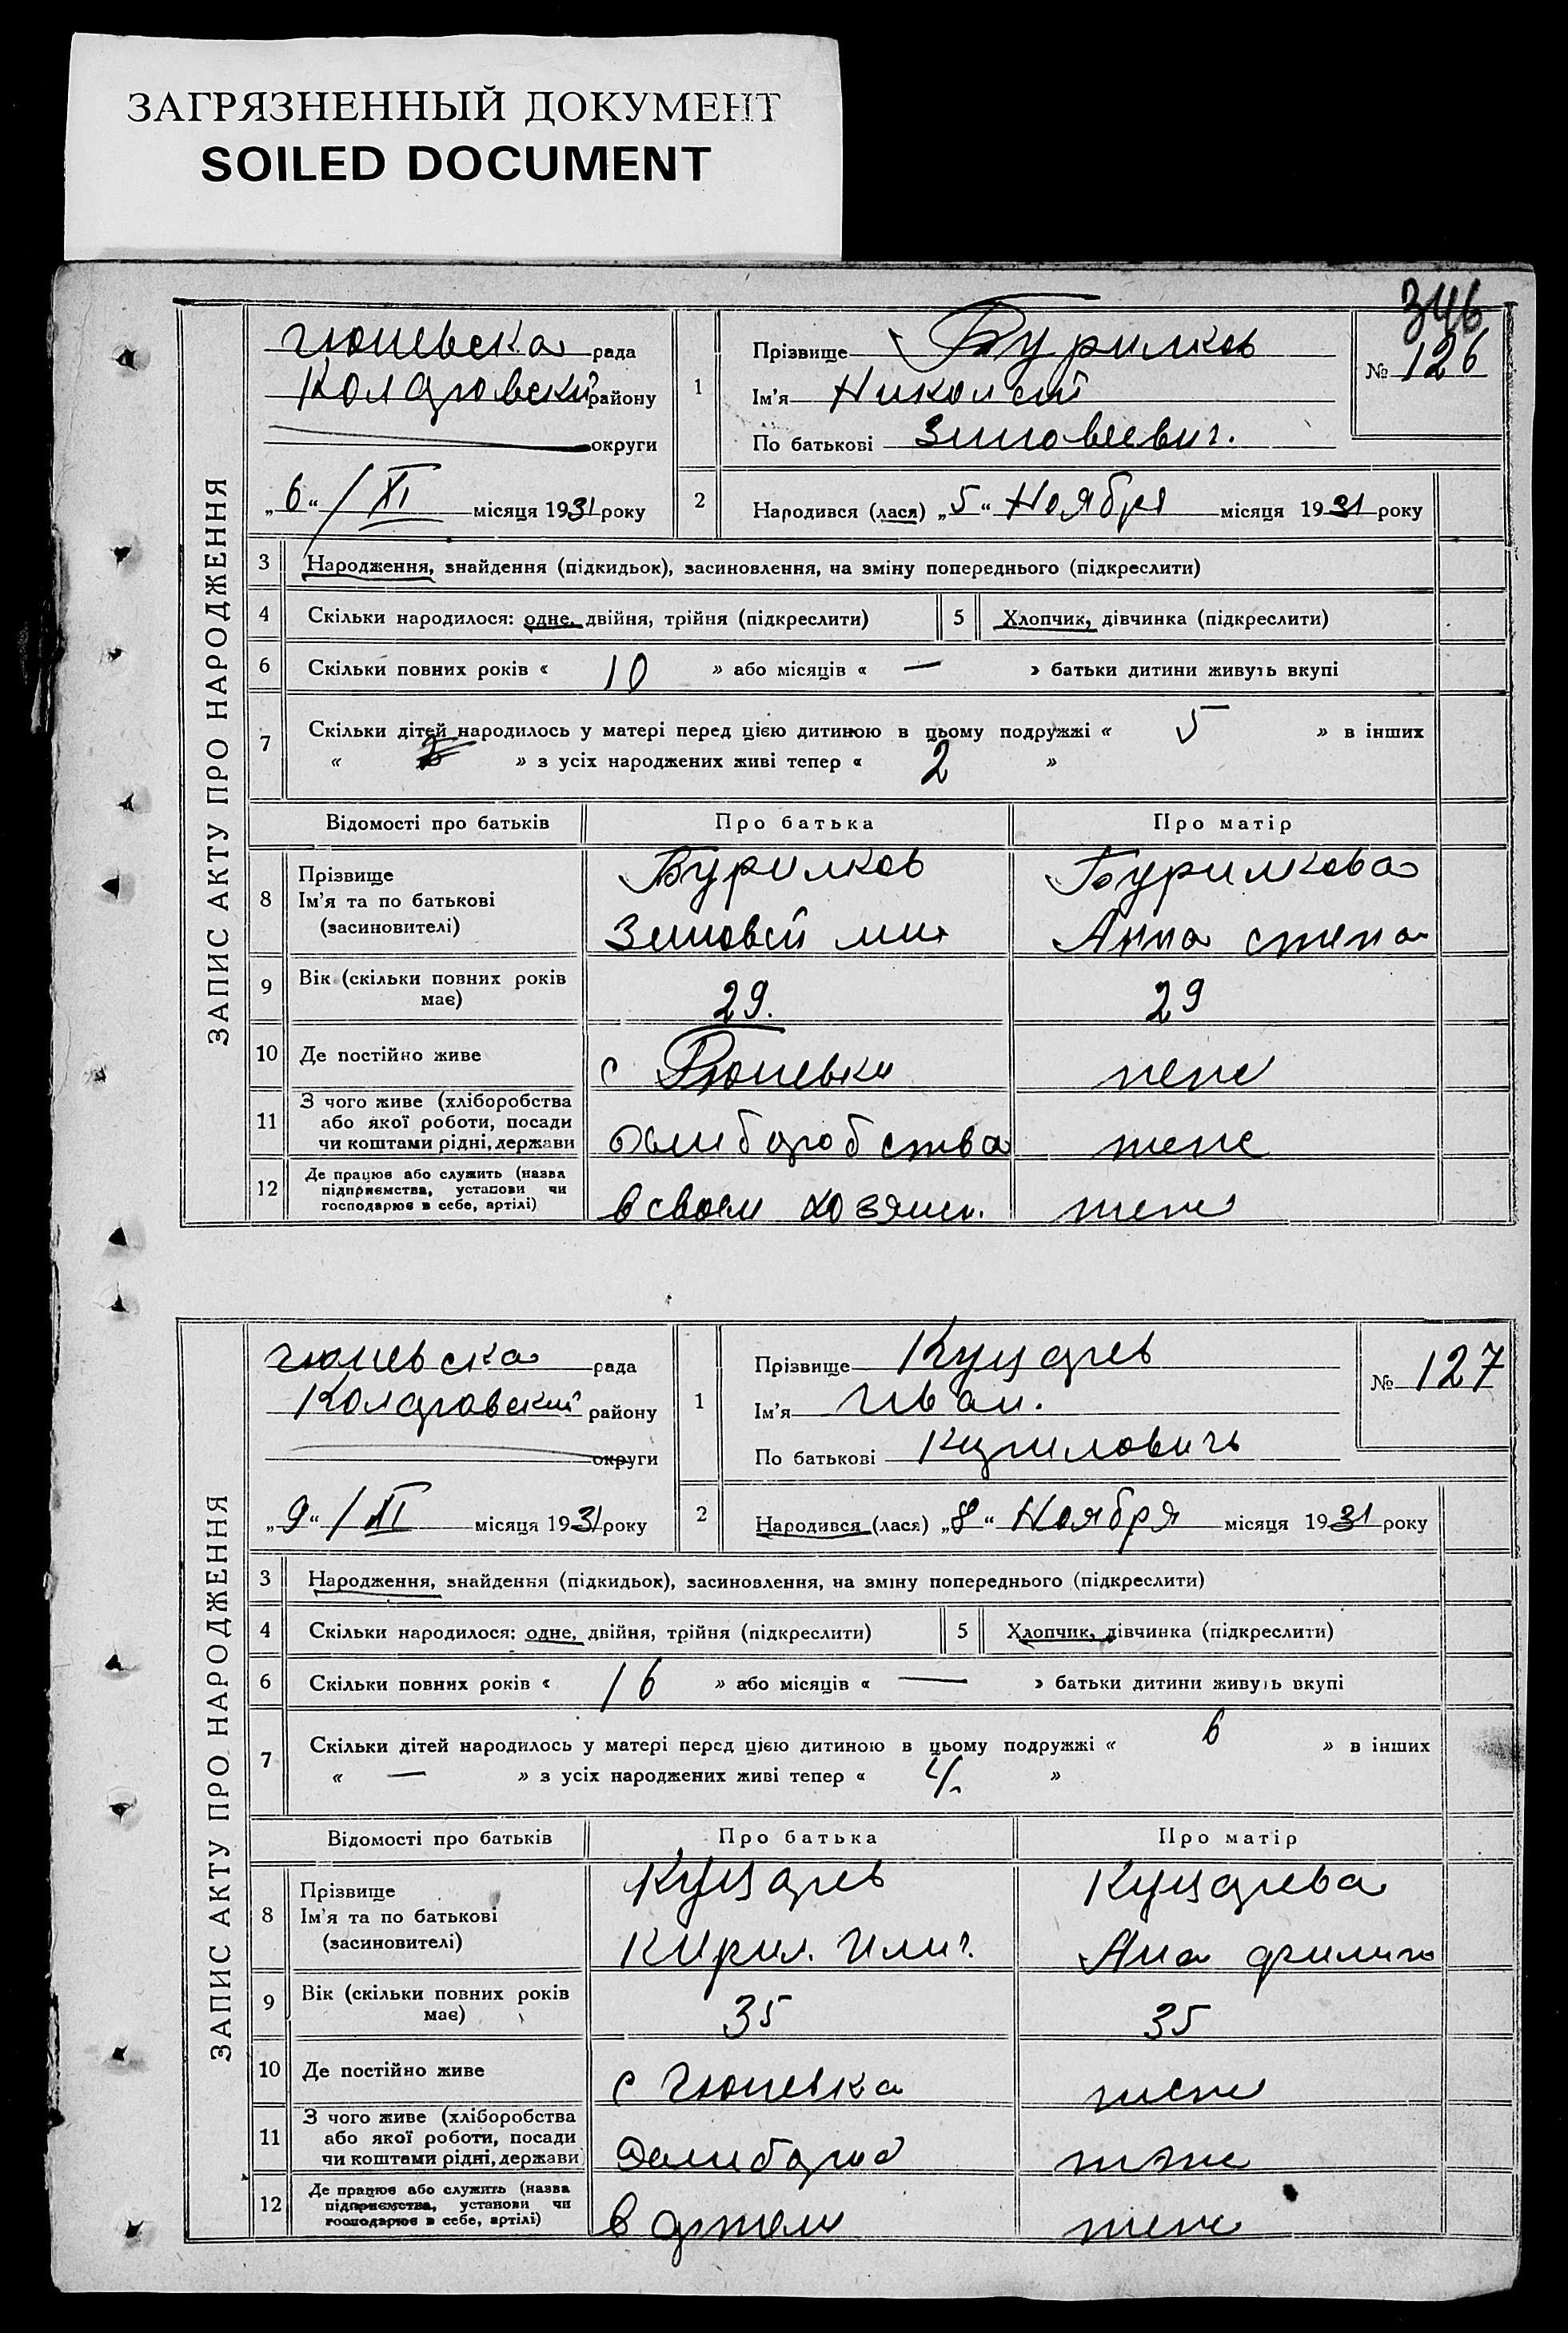 ЗАГРЯЗНЕННЫЙ ДОКУМЕНТ
SOILED DOCUMENT
346
ЗАПИС АКТУ ПРО НАРОДЖЕННЯ
рада
району
округи
„6“ / XI місяця 1931 року
1
Прізвище Бурилков
Ім'я Николай
По батькові Зиновеевич.
№ 126
2
Народився (лася) „5“ Ноября місяця 1931 року
3 Народження, знайдення (підкидьок), засиновлення, на зміну попереднього (підкреслити)
4 Скільки народилося: одне, двійня, трійня (підкреслити) 5 Хлопчик, дівчинка (підкреслити)
6 Скільки повних років « 10 » або місяців « — » батьки дитини живуть вкупі
7 Скільки дітей народилось у матері перед цією дитиною в цьому подружжі « 5 » в інших
« » з усіх народжених живі тепер « 2 »
Відомості про батьків Про батька Про матір
8 Прізвище
Ім'я та по батькові
(засиновителі)
Бурилков Бурилкова
Зиновей мих Анна степа
9 Вік (скільки повних років має) 29. 29
10 Де постійно живе с Тюпевки
11 З чого живе (хліборобства
або якої роботи, посади
чи коштами рідні, держави
12 Де працює або служить (назва
підприємства, установи чи
господарює в себе, артілі)
в своем хозяисв.
ЗАПИС АКТУ ПРО НАРОДЖЕННЯ
рада
району
округи
„9“ / XI місяця 1931 року
1
Прізвище
Ім'я Иван.
По батькові Кириловичь
№ 127
2
Народився (лася) „8“ Ноября місяця 1931 року
3 Народження, знайдення (підкидьок), засиновлення, на зміну попереднього (підкреслити)
4 Скільки народилося: одне, двійня, трійня (підкреслити) 5 Хлопчик, дівчинка (підкреслити)
6 Скільки повних років « 16 » або місяців « — » батьки дитини живуть вкупі
7 Скільки дітей народилось у матері перед цією дитиною в цьому подружжі « 6 » в інших
« — » з усіх народжених живі тепер « 4 »
Відомості про батьків Про батька Про матір
8 Прізвище
Ім'я та по батькові
(засиновителі)
Кирил. Илич. Ана филип
9 Вік (скільки повних років має) 35 35
10 Де постійно живе
11 З чого живе (хліборобства
або якої роботи, посади
чи коштами рідні, держави
12 Де працює або служить (назва
підприємства, установи чи
господарює в себе, артілі)
в артели